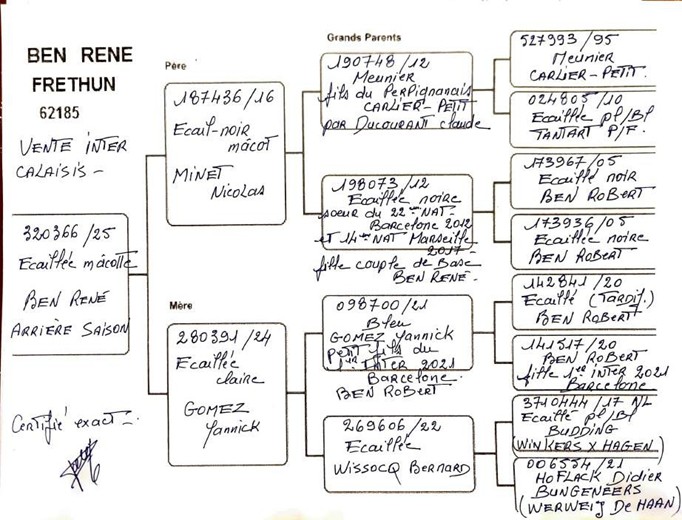 BEN RENE
FRETHUN
62185
VENTE INTER
CALAISIS -
320366/25
Ecaillée mâcotte
BEN RENÉ
ARRIÈRE SAISON
Certifié exact -
Père
187436/16
Ecail-noir
mâcot
MINET
Nicolas
Mère
280391/24
Ecaillée
claire
GOMEZ
Yannick
Grands Parents
190748/12
Meunier
fils du Perpignanais
CARLIER-PETIT
par Ducourant claude
198073/12
Ecaillée noire
soeur du 22e NAT-
Barcelone 2012
et 14e NAT Marseille
2017-
fille couple de Base
BEN RENÉ.
098700/21
Bleu
GOMEZ Yannick
Petit fils du
1er INTER 2021
Barcelone.
BEN ROBERT
269606/22
Ecaillée
WISSOCQ BERNARD
527993/95
Meunier
CARLIER-PETIT.
024805/10
Ecaillée pl/Bl
TANTART P/F.
173967/05
Ecaillé noir
BEN ROBERT
173936/05
Ecaillée noire
BEN ROBERT
142841/20
Ecaillé (TARDIF.)
BEN ROBERT
141517/20
BEN ROBERT
fille 1er INTER 2021
Barcelone
3710444/17 NL
Ecaillé pl/Bl
BUDDING
(WINKERS X HAGEN)
006554/21
HOFLACK Didier
BUNGENEERS
(WERWEIJ De HAAN)